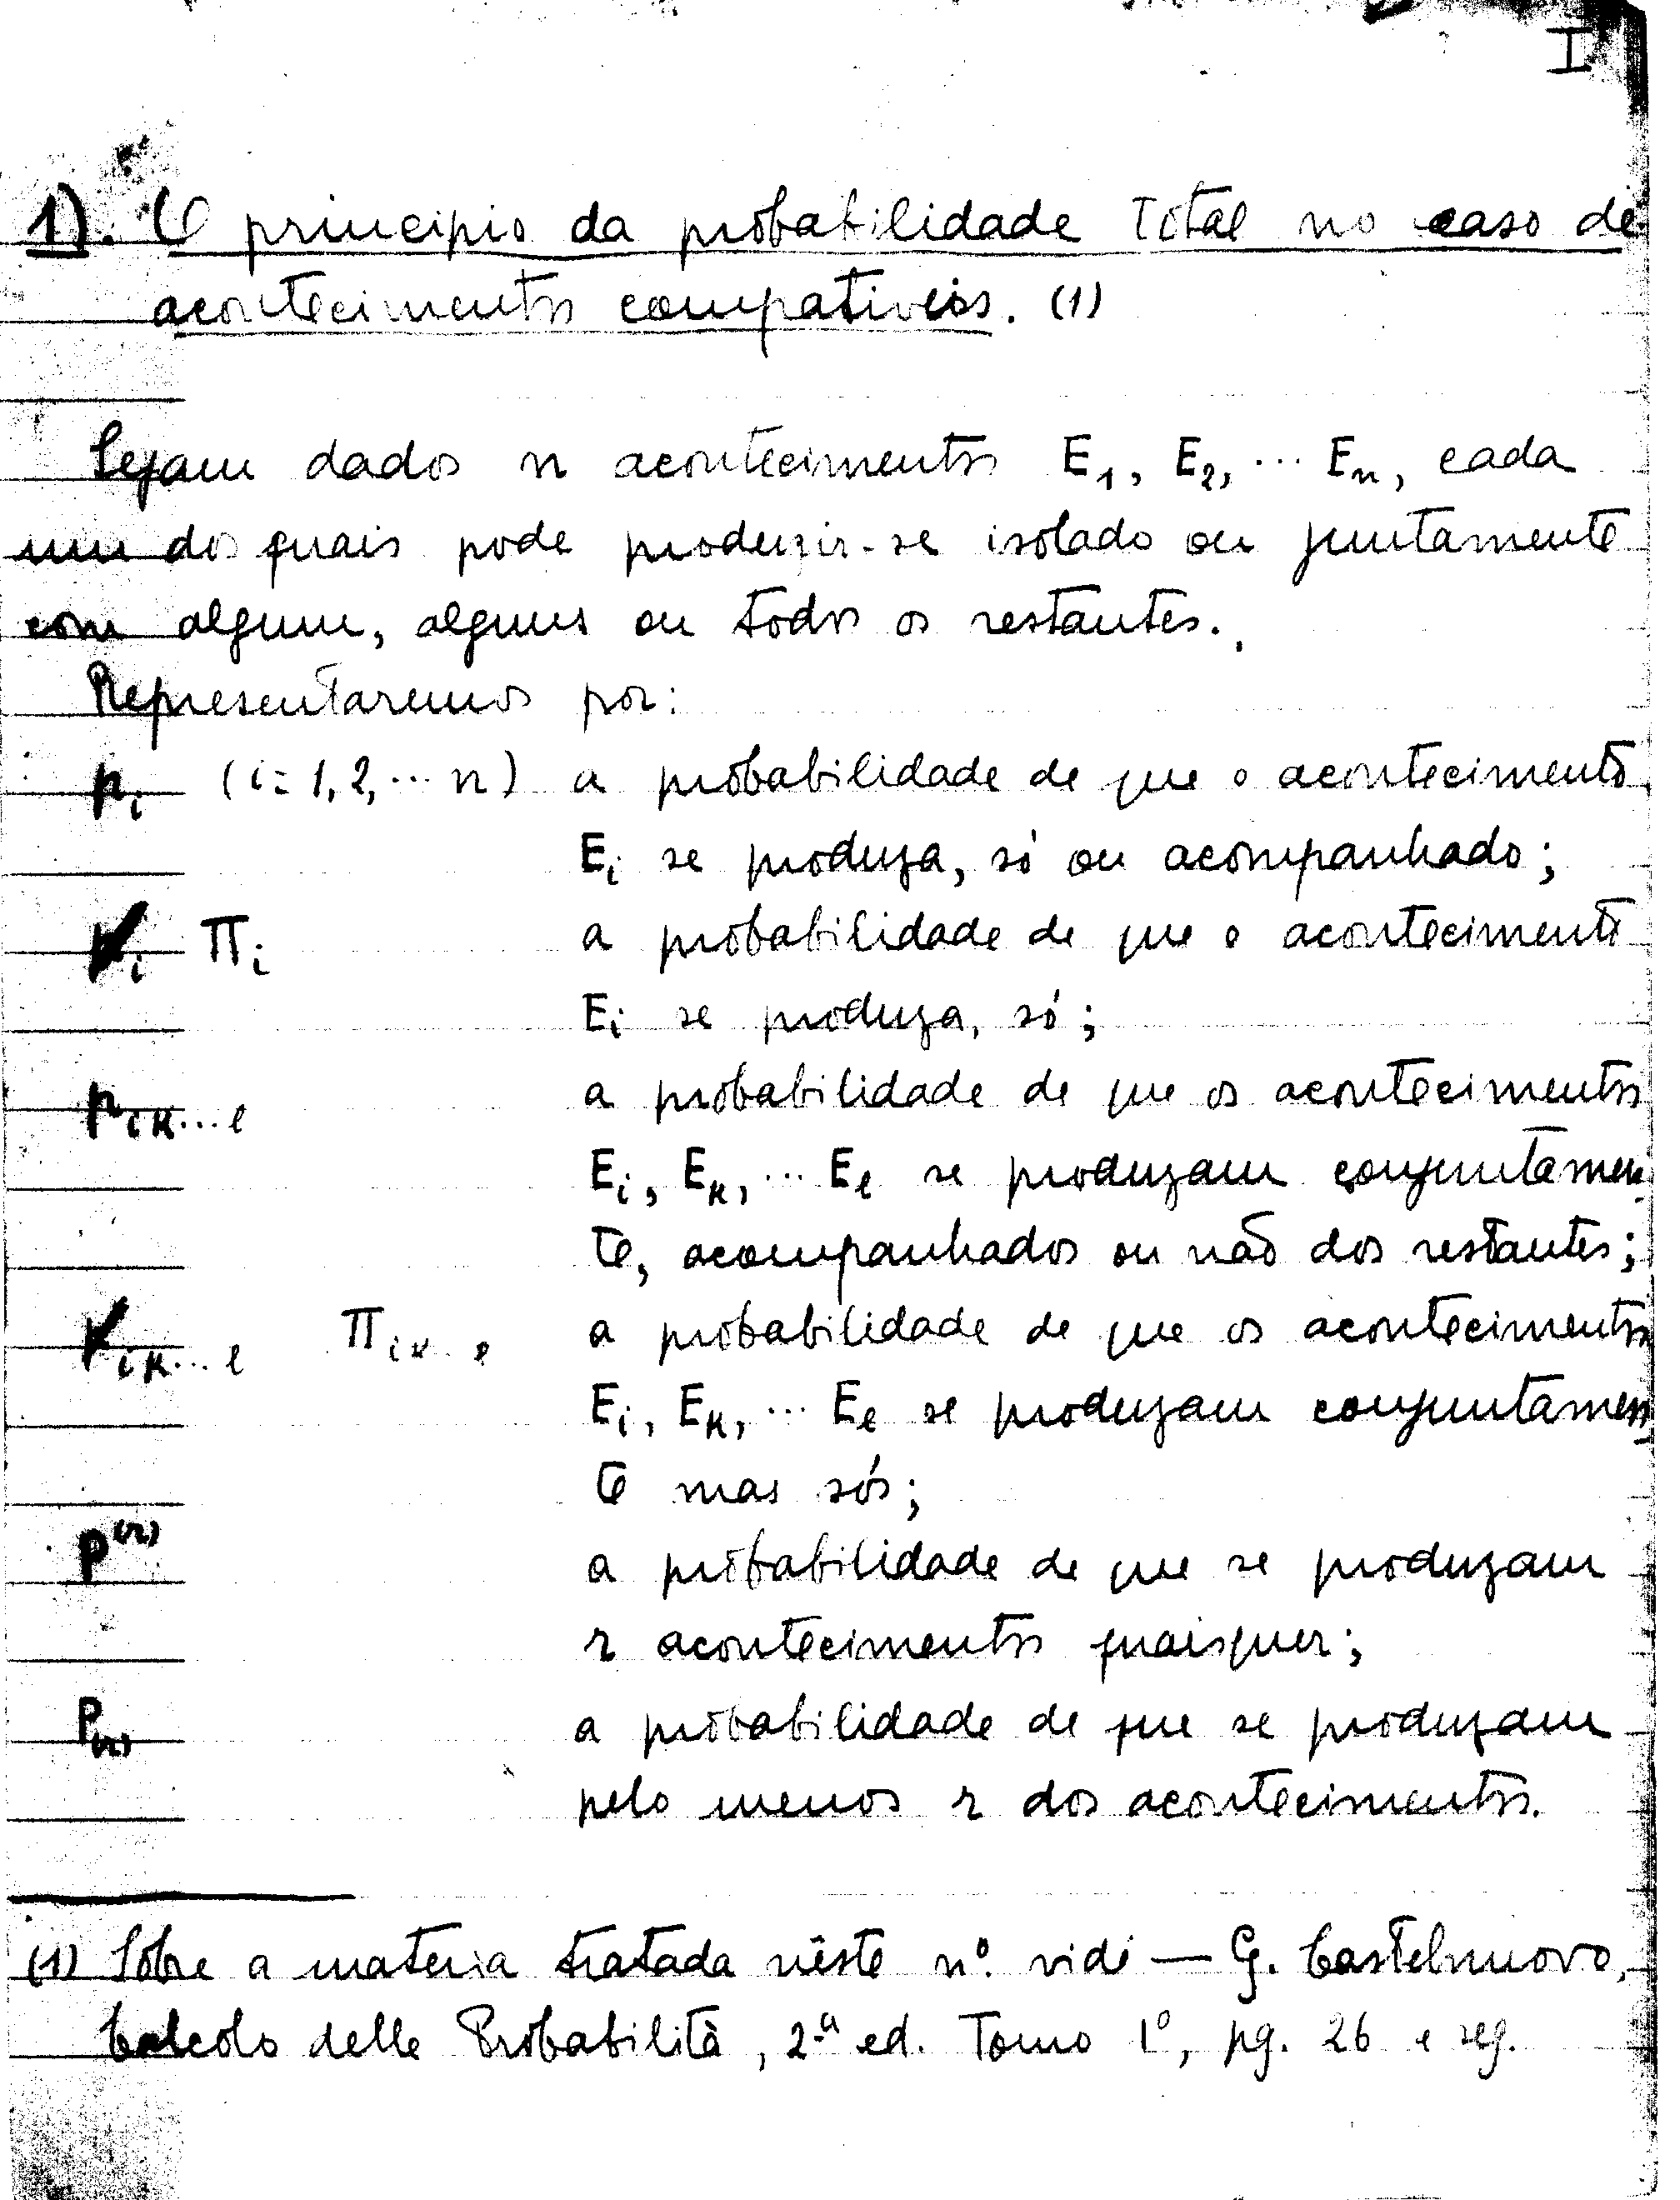 I
1). O principio da probabilidade total no caso de
acontecimentos compativeis. (1)
Sejam dados n acontecimentos E₁, E₂, ... Eₙ, cada
um dos quais pode produzir-se isolado ou juntamente
com algum, alguns ou todos os restantes.
Representaremos por:
pᵢ (i = 1, 2, ... n) a probabilidade de que o acontecimento
Eᵢ se produza, só ou acompanhado;
πᵢ a probabilidade de que o acontecimento
Eᵢ se produza, só;
p_{ik...l} a probabilidade de que os acontecimentos
Eᵢ, E_k, ... E_l se produzam conjuntamen
te, acompanhados ou não dos restantes;
π_{ik...l} a probabilidade de que os acontecimentos
Eᵢ, E_k, ... E_l se produzam conjuntamen
te mas sós;
P^{(r)} a probabilidade de que se produzam
r acontecimentos quaisquer;
P_{(r)} a probabilidade de que se produzam
pelo menos r dos acontecimentos.
(1) Sôbre a materia tratada nêste nº. vidé — G. Castelnuovo,
Calcolo delle Probabilità, 2.ª ed. Tomo 1º, pg. 26 e seg.